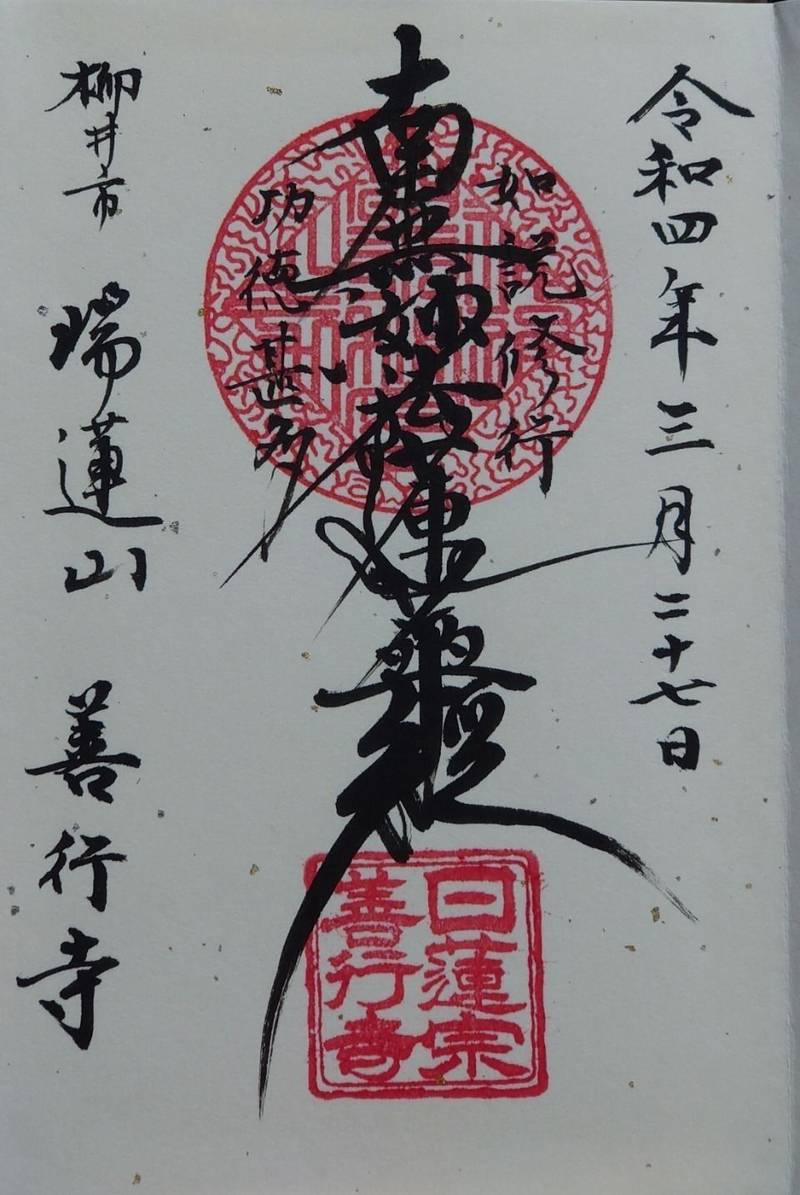 令和四年三月二十七日
如説修行
南無妙法蓮華経
功徳甚多
日蓮宗
善行寺
柳井市 瑞蓮山 善行寺